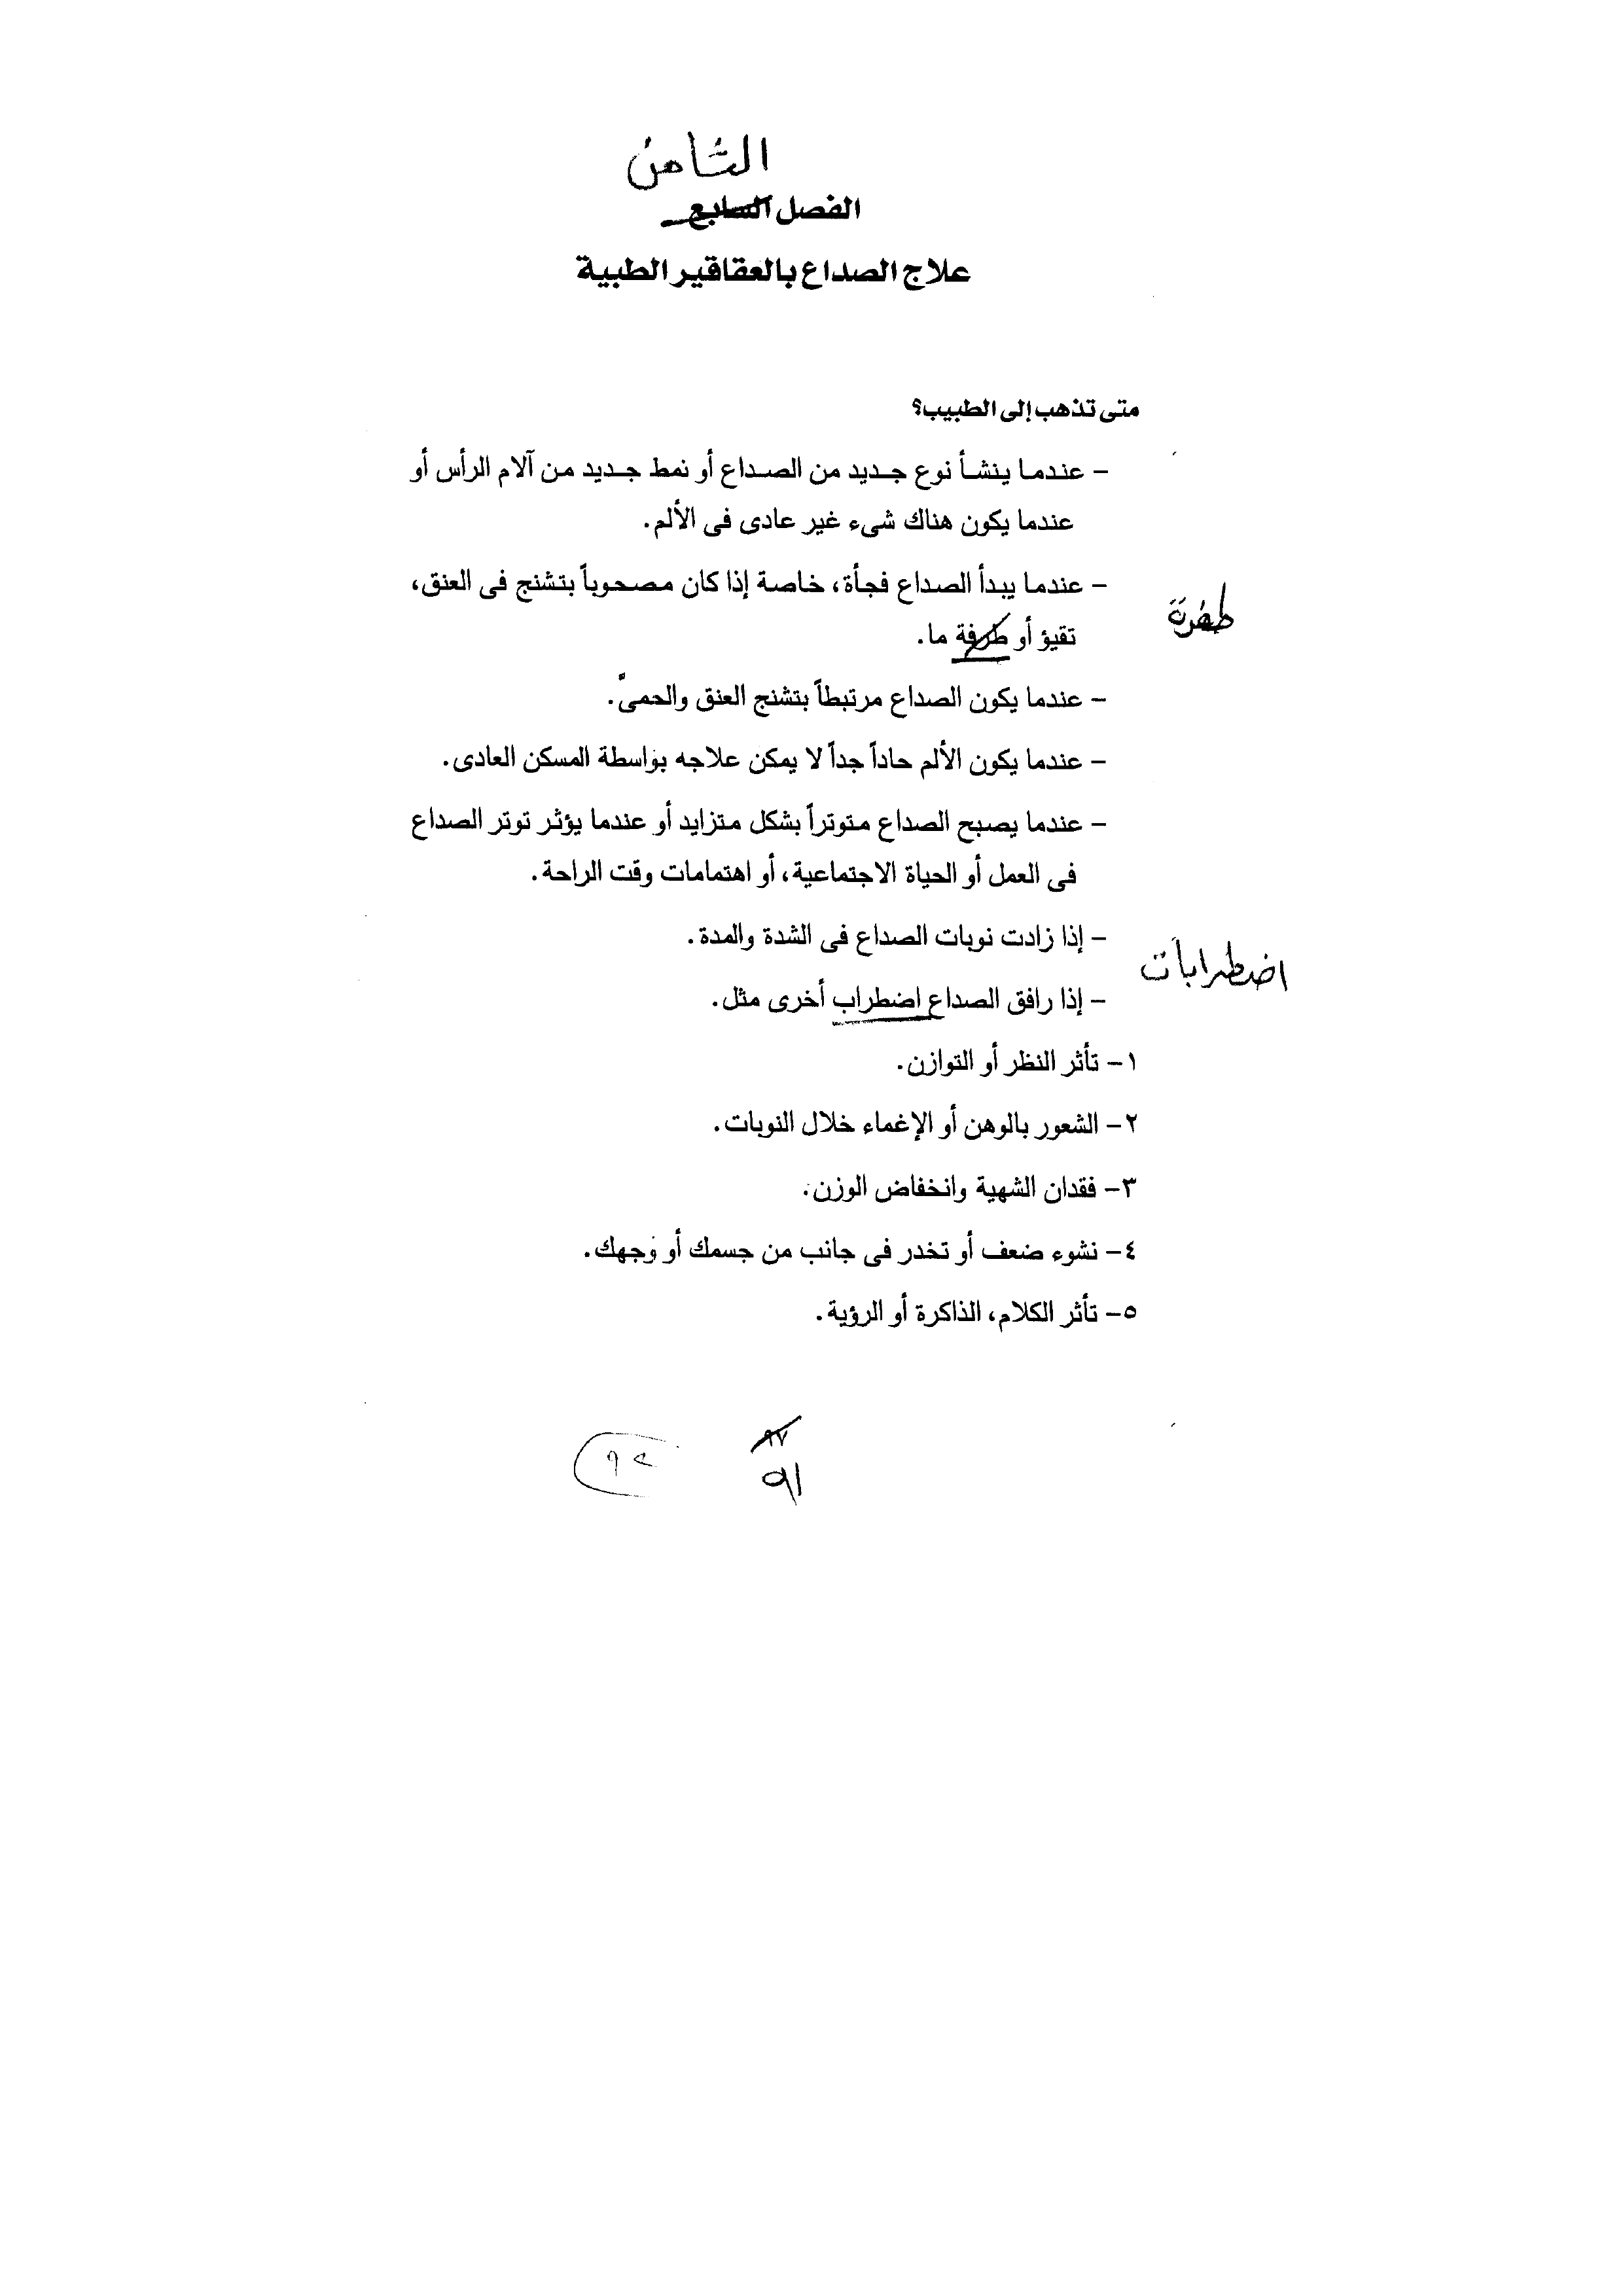 الثامن
الفصل السابع
علاج الصداع بالعقاقير الطبية
متى تذهب إلى الطبيب؟
– عندما ينشأ نوع جديد من الصداع أو نمط جديد من آلام الرأس أو
عندما يكون هناك شىء غير عادى فى الألم.
– عندما يبدأ الصداع فجأة، خاصة إذا كان مصحوباً بتشنج فى العنق،
طفرة
تقيؤ أو طرفة ما.
– عندما يكون الصداع مرتبطاً بتشنج العنق والحمى.
– عندما يكون الألم حاداً جداً لا يمكن علاجه بواسطة المسكن العادى.
– عندما يصبح الصداع متوتراً بشكل متزايد أو عندما يؤثر توتر الصداع
فى العمل أو الحياة الاجتماعية، أو اهتمامات وقت الراحة.
– إذا زادت نوبات الصداع فى الشدة والمدة.
اضطرابات
– إذا رافق الصداع اضطراب أخرى مثل.
١– تأثر النظر أو التوازن.
٢– الشعور بالوهن أو الإغماء خلال النوبات.
٣– فقدان الشهية وانخفاض الوزن.
٤– نشوء ضعف أو تخدر فى جانب من جسمك أو وجهك.
٥– تأثر الكلام، الذاكرة أو الرؤية.
٩٧
٩١